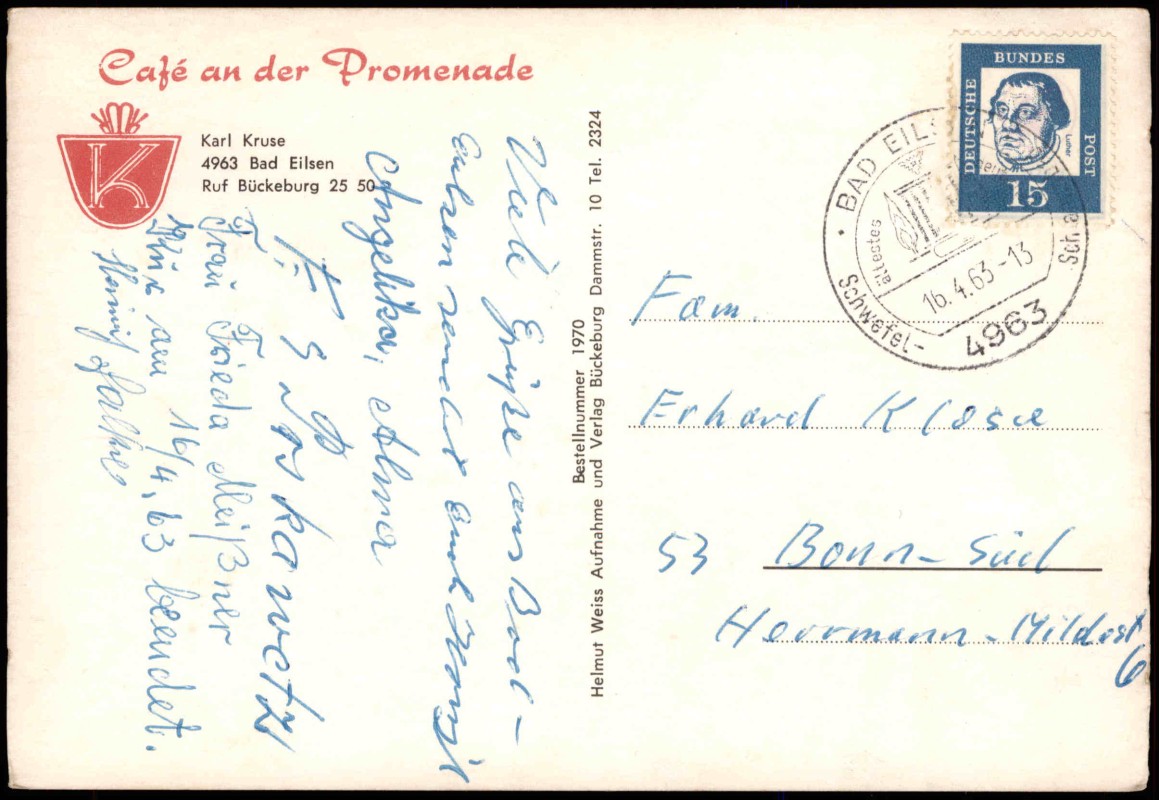 Café an der Promenade
K
Karl Kruse
4963 Bad Eilsen
Ruf Bückeburg 25 50
Viele Grüße aus Bad-
Eilsen sendet Euch
Angelika, Alma
Frau Frieda Meißner
Kur am 16/4.63 beendet.
Bestellnummer 1970
Helmut Weiss Aufnahme und Verlag Bückeburg Dammstr. 10 Tel. 2324
DEUTSCHE BUNDES POST
Luther
15
BAD EILSEN
ältestes
16.4.63-13
Schwefel-
4963
Fam.
Erhard Klose
53 Bonn-Süd
6